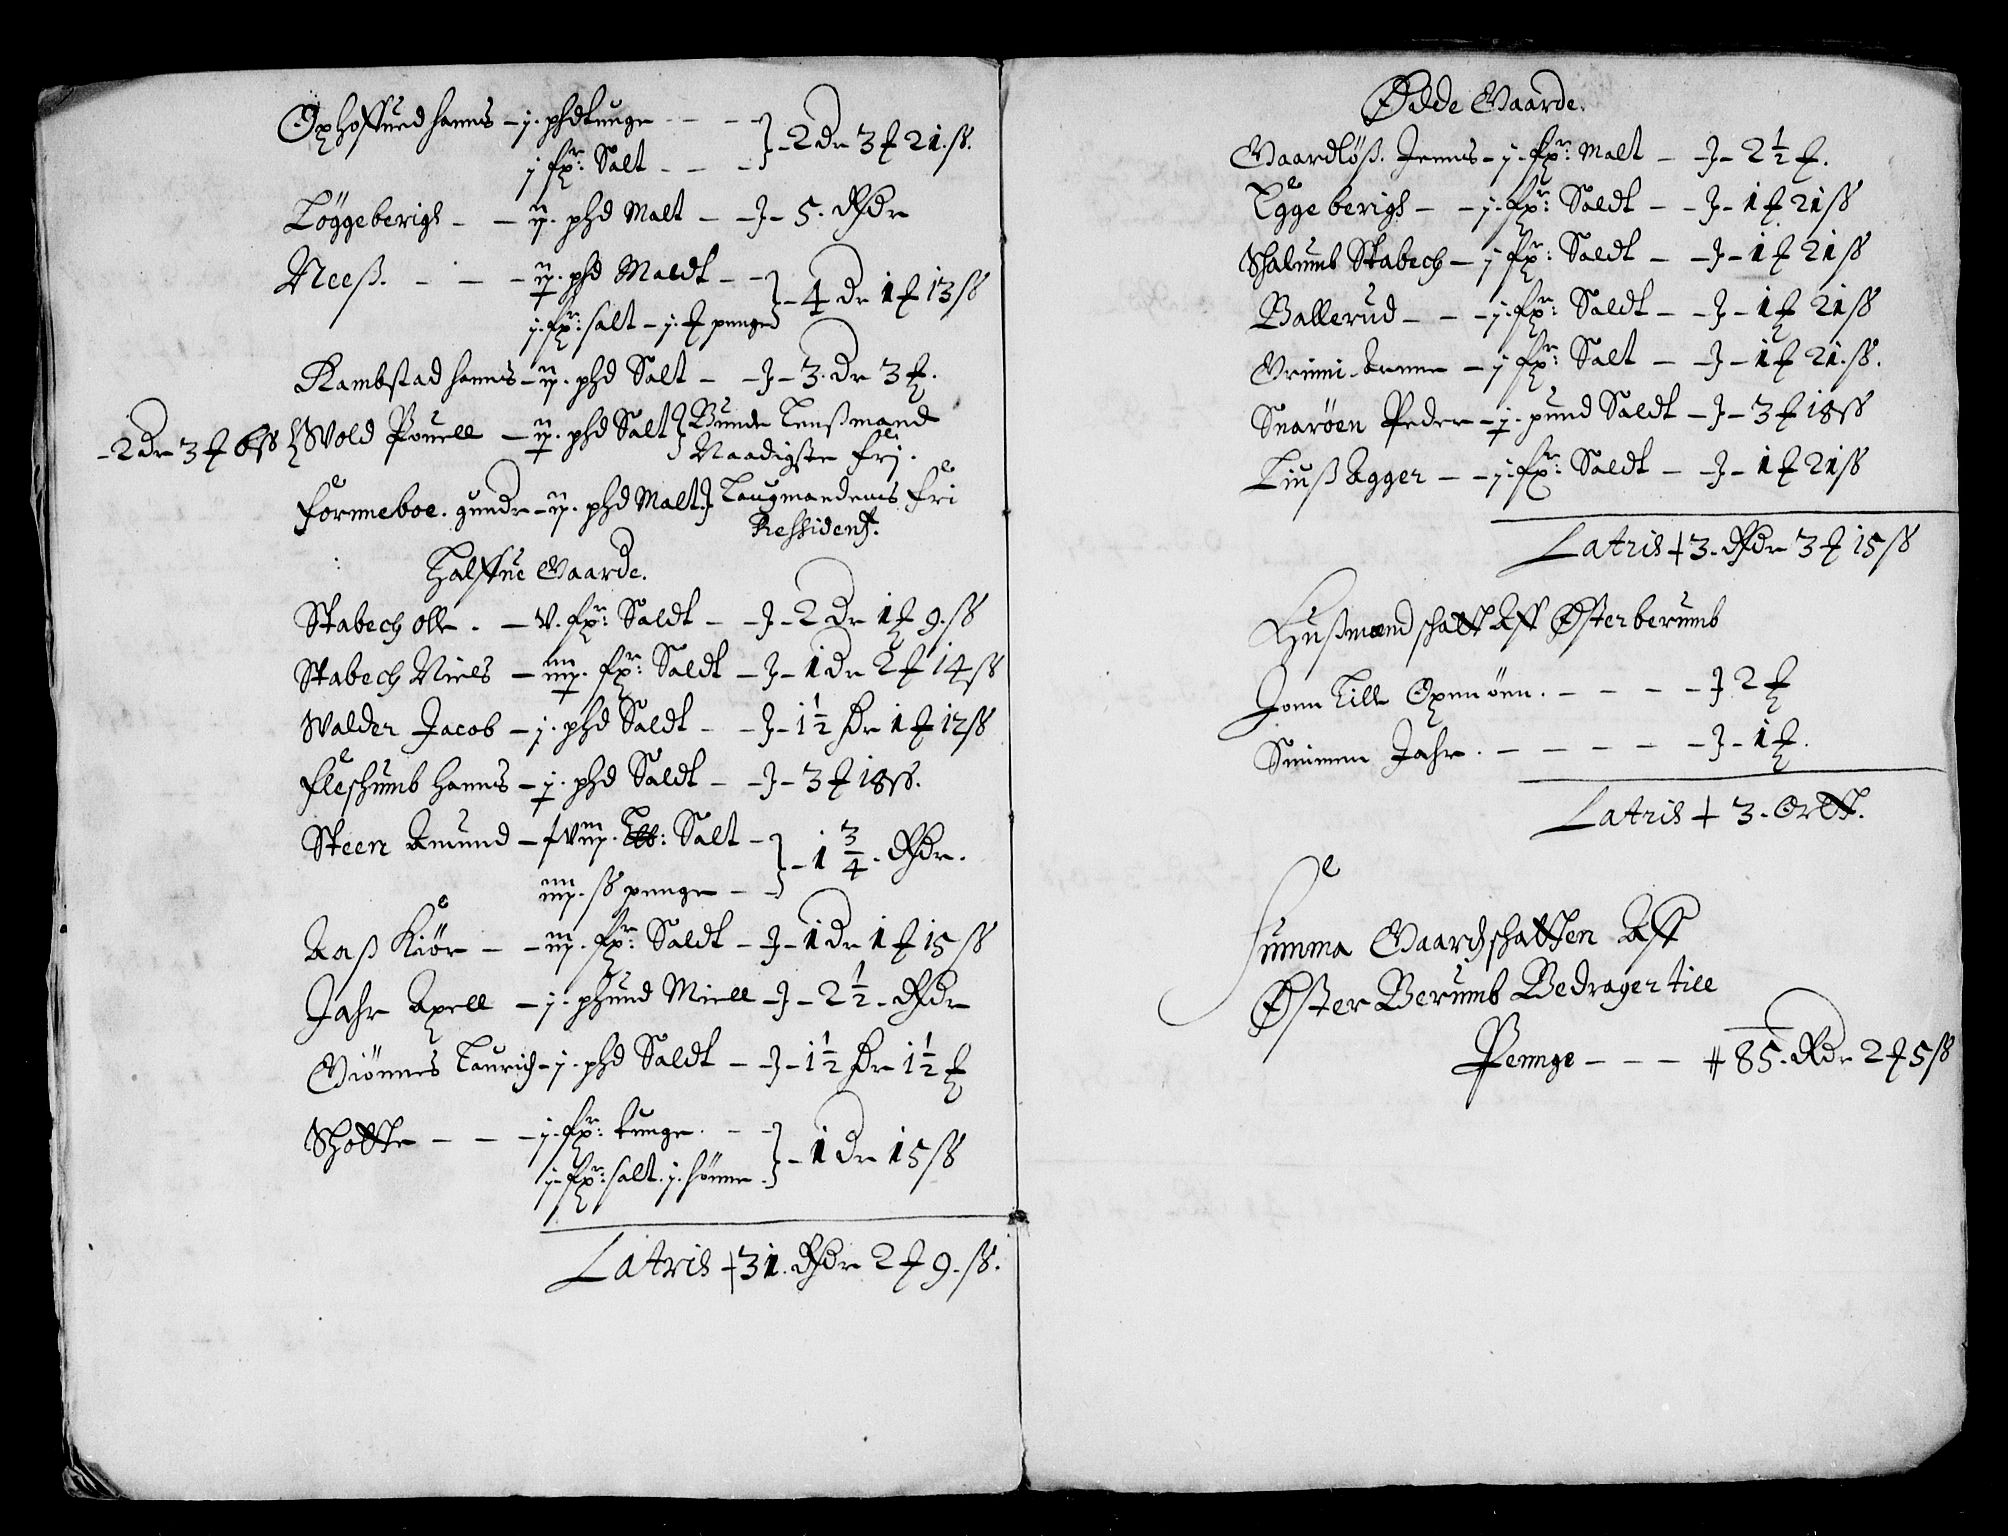 Oxhoffued hanns – j. phd tunge – – } – 2 Dr 3 ₰ 21 ß.
j fxr: Salt – –
Løggeberigh – – ij. phd Malt – } – 5. Rdr
Neeß. – – – ij. phd Maldt – – } – 4 Dr 1 ₰ 13 ß
j. fxr: salt – j. ₰ penge
Rambstad hanns – ij. phd Salt – } – 3. Dr 3 ₰.
– 2 Dr 3 ₰ 6 ß { Wold Pouell – ij. phd Salt } Bunde Lenßmand
Naadigste frj.
Forneboe. gunder – ij. phd Malt } Laugmandens fri
Ressidens.
Halffue Gaarde.
Stabech olle. – v. fxr: Saldt – } – 2 Dr 1 ₰ 9. ß
Stabech Niels – iiij. fxr: Saldt – } – 1 Dr 2 ₰ 14 ß
Walder Jacob – j. phd Saldt – } – 1½ Dr 1 ₰ 12 ß
Fleshumb hanns – j. phd Saldt – } – 3 ₰ 18 ß.
Steen Amund – Salt – } – 1 3/4. Rdr.
iiij. ß penge –
Aaß Kiør – – iij. fxr: Saldt – } – 1 Dr 1 ₰ 15 ß
Jahr Axell – j. phund Miell – } – 2½. Rdr
Giønnes Laurich – j. phd Saldt – } – 1½ Dr 1½ ₰
Shotte – – – j. fxr: tunge. – } – 1 Dr 15 ß
j. fxr: salt. j. hønne.
Latris + 31. Rdr 2 ₰ 9. ß.
Ødde Gaarde.
Gaardløß. Jenns – j. fxr: Malt – } – 2½ ₰.
Eggeberigh – – j. fxr: Saldt – } – 1 ₰ 21 ß
Shalumb Stabech – j fxr: Saldt – } – 1 ₰ 21 ß
Ballerud – – – j. fxr: Saldt – } – 1 ₰ 21 ß
Grinni – j fxr: Salt – } – 1 ₰ 21. ß.
Snarøen Peder – j. pund Saldt – } – 3 ₰ 18 ß
Liuß Agger – – j. fxr: Saldt – } – 1 ₰ 21 ß
Latris + 3. Rdr 3 ₰ 15 ß
Hußmand shatt Aff Østerberumb
Jonn Lille Oxenøen. – – – – } 2 ₰
Simmen Jahr. – – – – – } – 1 ₰.
Latris + 3. Ortt.
Summa Gaardshatten Aff
Øster Berumb Bedrager till
Penge – – – # 85. Rdr 2 ₰ 5 ß